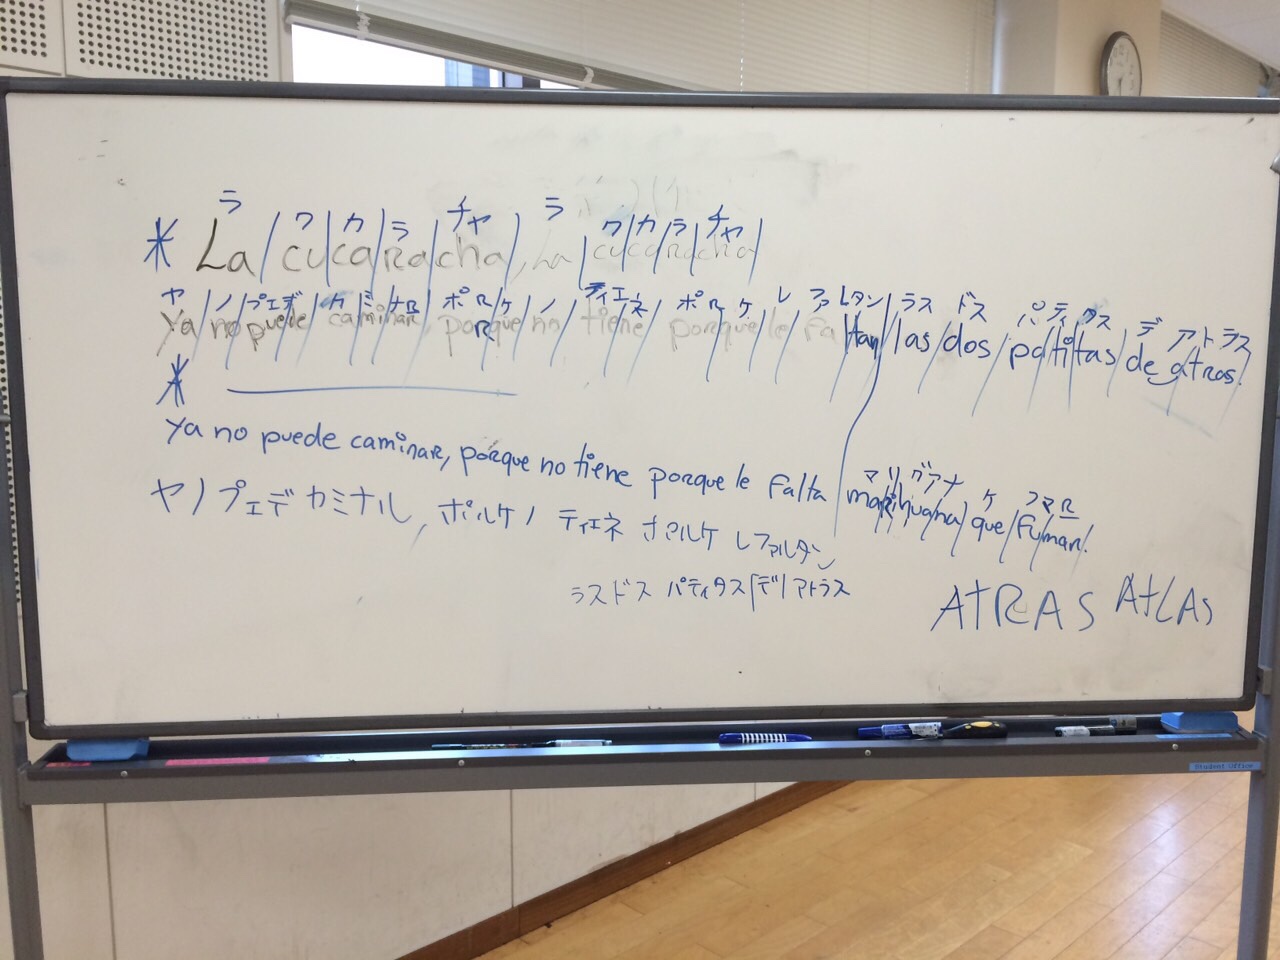 ラ ク カ ラ チャ ラ ク カ ラ チャ
* La/cu/ca/Ra/cha/, La/cu/ca/Ra/cha/
ヤ ノ プエデ カ ミ ナR ポ R ケ ノ ティエネ ポ R ケ レ ファルタン ラス ドス パ ティ タス デ アトラス
Ya/no/puede/caminaR,/porque/no/tiene/porque/le/fal/tan/las/dos/pa/ti/tas/de atras.
*
Ya no puede caminaR, porque no tiene porque le falta
マ リ グアナ ケ フマR
maRihuana/que/fumaR!
ヤノプェデ カミナル, ポルケノ ティエネ ポルケ レファルタン
ラスドス パティタス/デ/アトラス
AtRAS AtLAs
Student Office